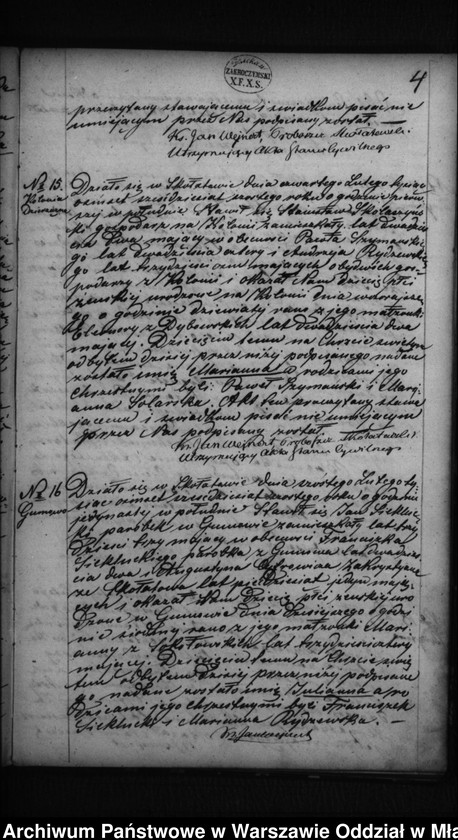 4
Archiwum
ZAKROCZYMSKI
X.F.X.S.
przeczytany stawającemu i świadkom pisać nie
umiejącym przez Nas podpisany został. —
Ks. Jan Wejnert, Proboszcz
Utrzymujący Akta Stanu Cywilnego
№ 15.
Kolonia
Działo się w dnia czwartego Lutego tysiąc
ośmset sześćdziesiąt szóstego roku o godzinie pierw
szej w południe Stawił się Stanisław
gospodarz na Kolonii zamieszkały, lat dwadzieś
cia dwa mający w obecności Pawła Szymański
go lat dwadzieścia cztery i Andrzeja
go lat trzydzieści ośm mających obydwóch gos
podarzy z Kolonii i okazał Nam dziecię płci
żeńskiej urodzone na Kolonii dnia wczorajsze
go o godzinie dziewiątej rano z jego małżonki
Eleonory z lat dwadzieścia dwa
mającej. Dziecięciu temu na Chrzcie świętym
odbytym dzisiaj przez niżej podpisanego nadane
zostało imię Marianna a rodzicami jego
chrzestnymi byli: Paweł Szymański i Mary
anna Akt ten przeczytany stawa
jącemu i świadkom pisać nie umiejącym
przez Nas podpisany został.
Ks. Jan Wejnert Proboszcz
Utrzymujący Akta Stanu Cywilnego
№ 16
Gumowo
Działo się w dnia szóstego Lutego ty
siąc ośmset sześćdziesiąt szóstego roku o godzinie
jedynastej w południe Stawił się Jan
parobek w Gumowie zamieszkały lat trzy
dzieści trzy mający w obecności Franciszka
parobka z Gumowa lat dwadzieś
cia dwa i Augustyna
lat pięćdziesiąt jeden mają
cych i okazał Nam Dziecię płci żeńskiej uro
dzone w Gumowie dnia dzisiejszego o godzi
nie siódmej rano z jego małżonki Mari
anny z lat trzydzieści cztery
mającej. Dziecięciu temu na Chrzcie świę
tym odbytym dzisiaj przez niżej podpisane
go nadane zostało imię Julianna a ro
dzicami jego chrzestnymi byli Franciszek
i Marianna Rydzewska. —
Archiwum Państwowe w Warszawie Oddział w Mła